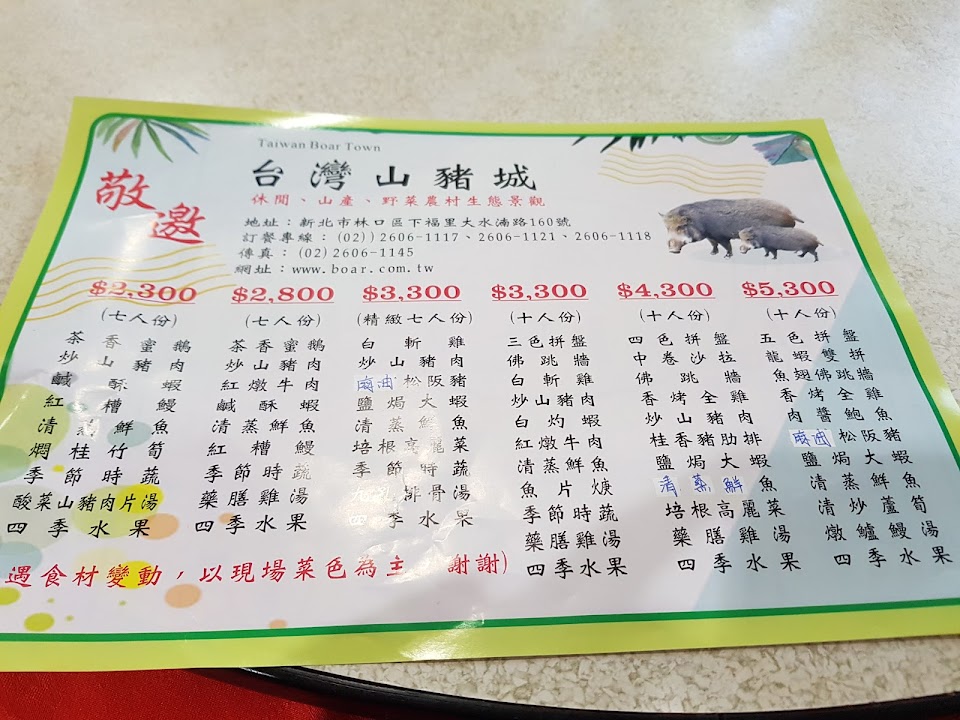 Taiwan Boar Town
敬邀
台灣山豬城
休閒、山產、野菜農村生態景觀
地址：新北市林口區下福里大水湳路160號
訂餐專線：(02))2606-1117、2606-1121、2606-1118
傳真：(02)2606-1145
網址：www.boar.com.tw
$2,300
(七人份)
茶香蜜鵝
炒山豬肉
鹹酥蝦
紅糟鰻
清蒸鮮魚
燜桂竹筍
季節時蔬
酸菜山豬肉片湯
四季水果
$2,800
(七人份)
茶香蜜鵝
炒山豬肉
紅燉牛肉
鹹酥蝦
清蒸鮮魚
紅糟鰻
季節時蔬
藥膳雞湯
四季水果
$3,300
(精緻七人份)
白斬雞
炒山豬肉
麻油松阪豬
鹽焗大蝦
清蒸鮮魚
培根高麗菜
季節時蔬
排骨湯
四季水果
$3,300
(十人份)
三色拼盤
佛跳牆
白斬雞
炒山豬肉
白灼蝦
紅燉牛肉
清蒸鮮魚
魚片焿
季節時蔬
藥膳雞湯
四季水果
$4,300
(十人份)
四色拼盤
中卷沙拉
佛跳牆
香烤全雞
炒山豬肉
桂香豬肋排
鹽焗大蝦
清蒸鮮魚
培根高麗菜
藥膳雞湯
四季水果
$5,300
(十人份)
五色拼盤
龍蝦雙拼
魚翅佛跳牆
香烤全雞
肉醬鮑魚
麻油松阪豬
鹽焗大蝦
清蒸鮮魚
清炒蘆筍
燉鱸鰻湯
四季水果
遇食材變動，以現場菜色為主 謝謝)